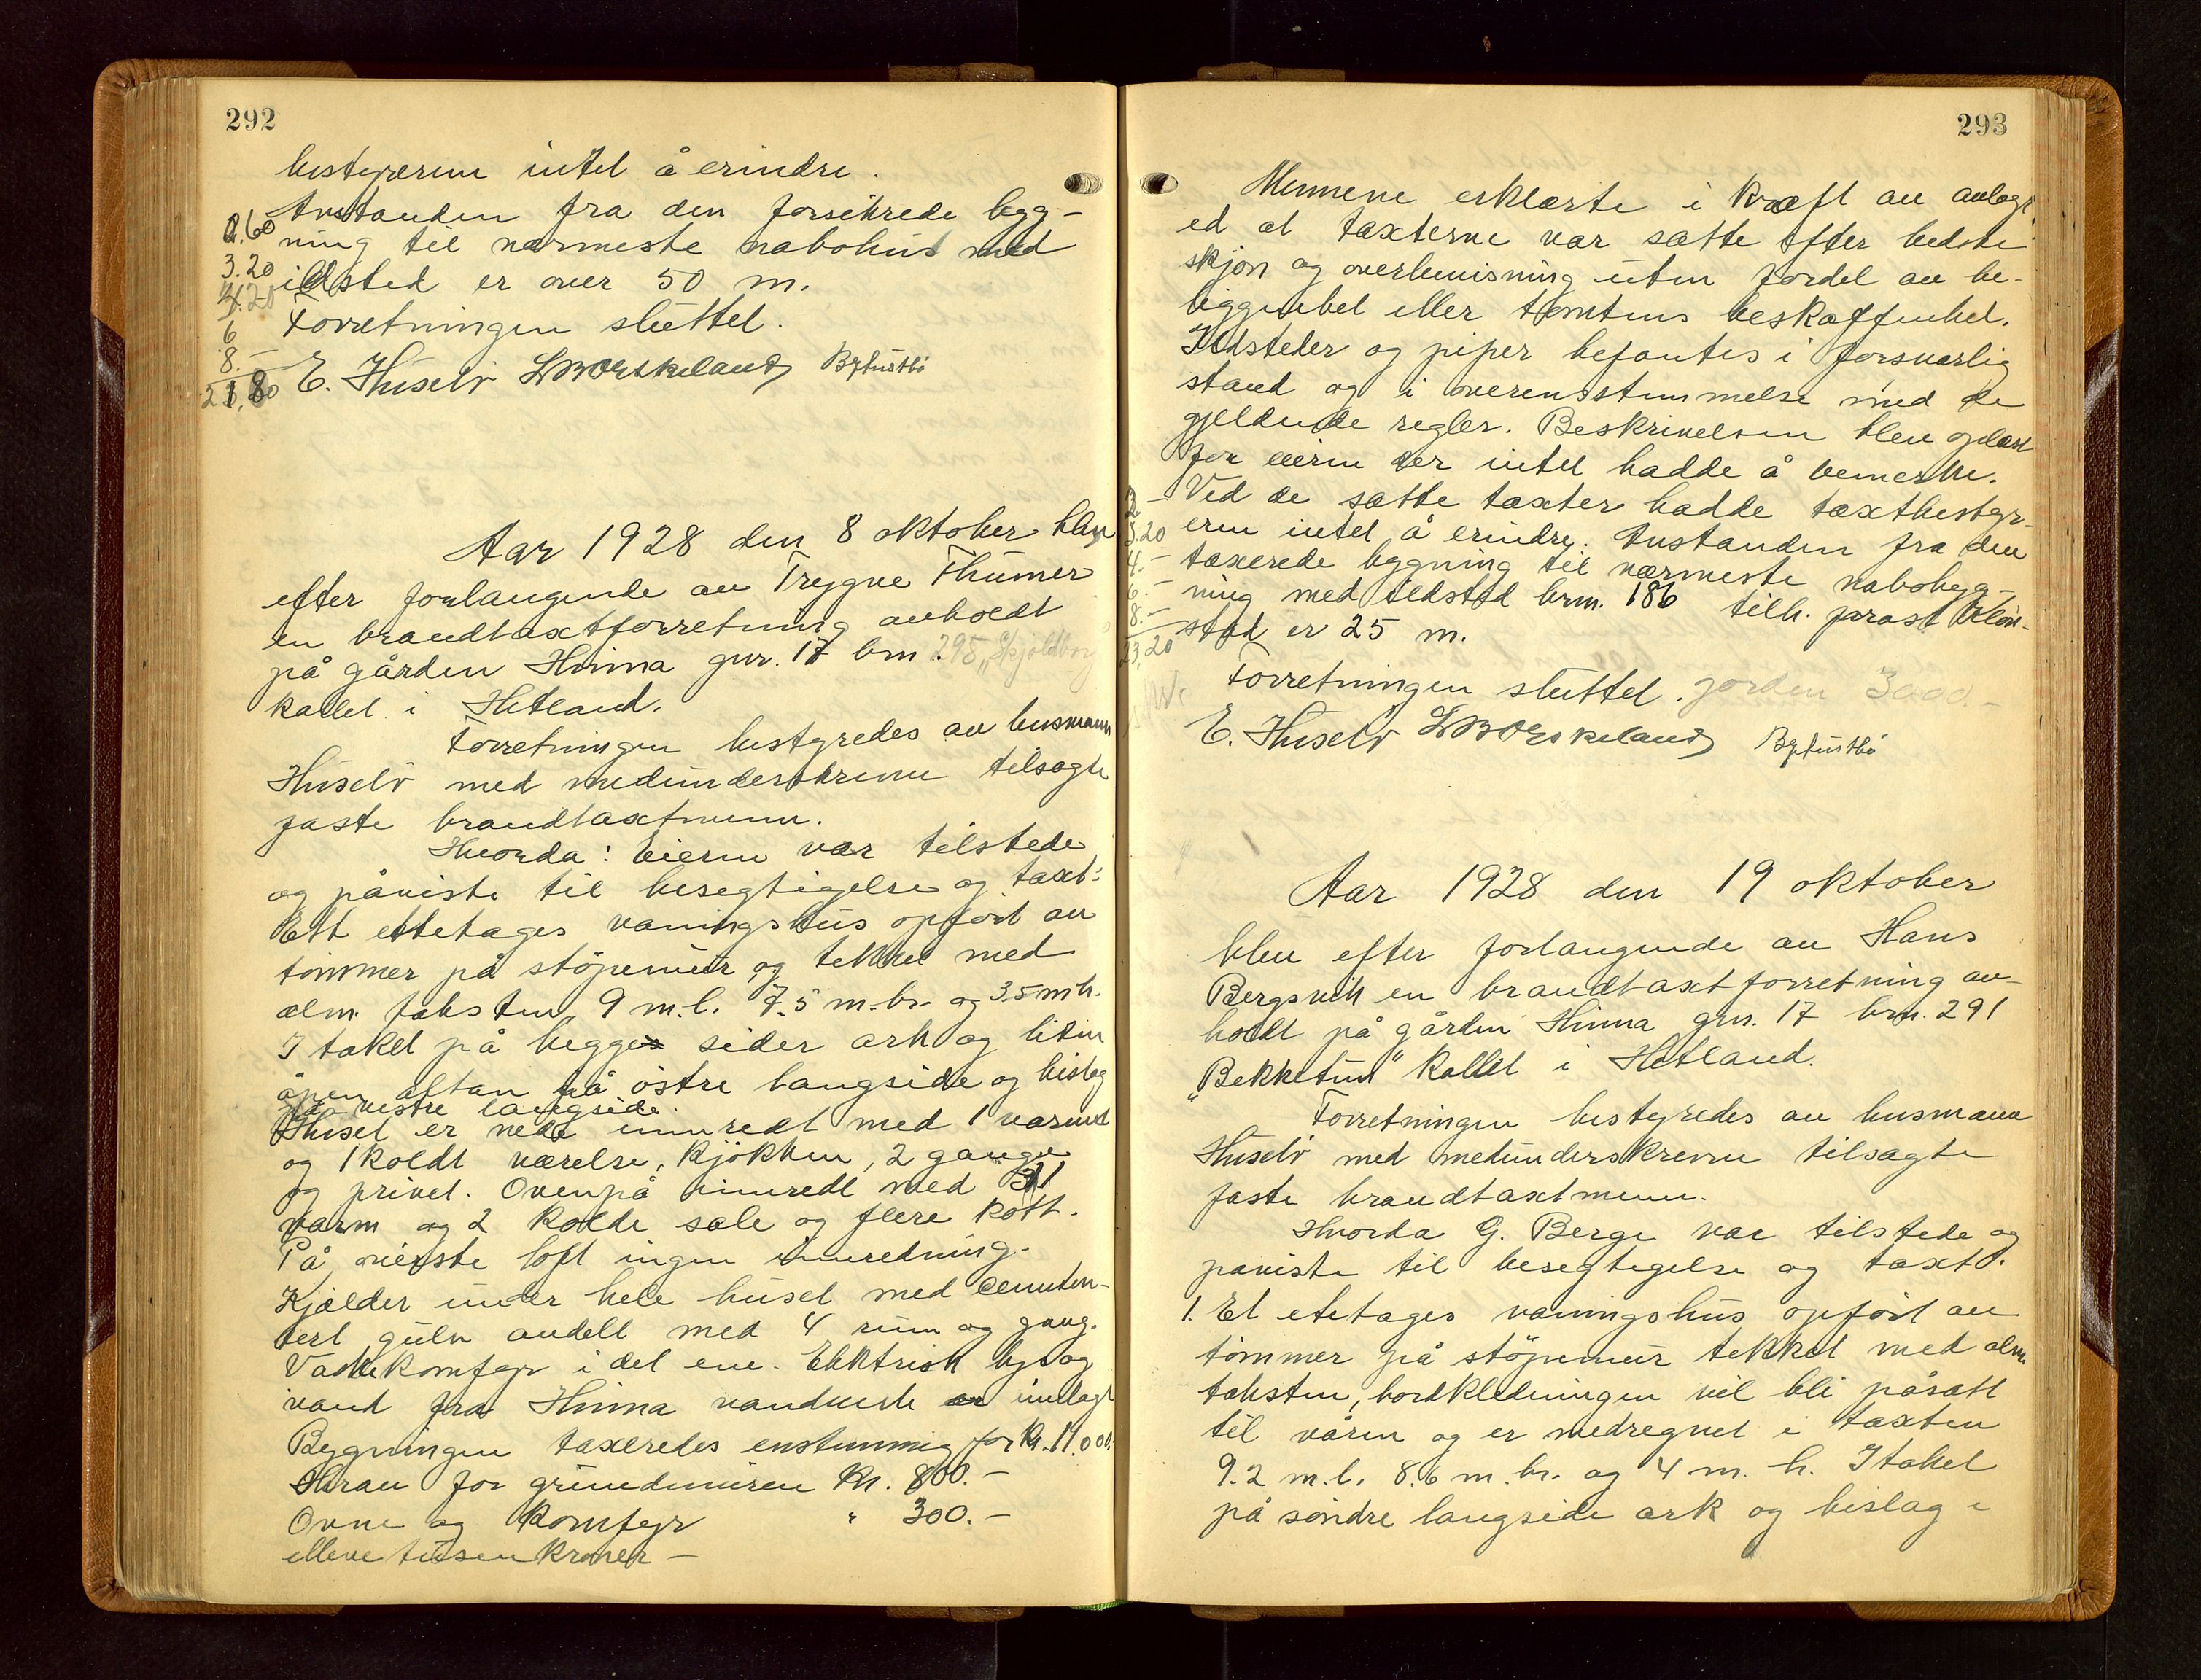 292
bestyreren intet å erindre.
Avstanden fra den forsikrede bygg-
2.60 ning til nærmeste nabohus med
3.20 ildsted er over 50 m.
4.20 Forretningen sluttet.
6
8.-
23,80 E. Husebø
Aar 1928 den 8 oktober blev
efter forlangende av Trygve Thumer
en brandtaxtforretning avholdt
på gården Hinna gnr. 17 brn. 295 "Skjoldborg
kallet i Hetland.
Forretningen bestyredes av husmann
Husebø med medunderskrevne tilsagte
faste brandtaxtmenn.
Hvorda: Eieren var tilstede
og påviste til besegtigelse og taxt:
Ett ettetages vaningshus opført av
tømmer på støpemur og tekket med
alm. taksten, 9 m.l. 7.5 m.br. og 3.5 m h.
I taket på begge sider ark og liten
åpen altan på østre langside og bislag
på vestre langside.
Huset er nede innredt med 1 varmt
og 1 koldt værelse, kjøkken, 2 gange
og privet. Ovenpå innredt med 1
varm og 2 kolde sale og flere kott.
På øverste loft ingen innredning.
Kjælder under hele huset med cementen-
tert gulv andelt med 4 rum og gang.
Vaskekomfyr i det ene. Elektrisk lys og
vand fra Hinna vandverk er innlagt
Bygningen taxeredes enstemmig for kr. 11.000.
Herav for grundmuren Kr. 800.-
Ovne og komfyr " 300.-
elleve tusen kroner -
293
Mennene erklærte i kraft av avlagt
ed at taxterne var satte efter bedste
skjøn og overbevisning uten fordel av be-
liggenhet eller tomtens beskaffenhet.
Ildsteder og piper befantes i forsvarlig
stand og i overensstemmelse med de
gjeldende regler. Beskrivelsen blev oplæst
for eieren der intet hadde å bemerke.
2 - Ved de satte taxter hadde taxtbestyr-
3.20 eren intet å erindre. Avstanden fra den
4.- taxerede bygning til nærmeste nabobyg-
6.- ning med ildsted brn. 186 tilh. prost
8.- stad er 25 m.
23,20
Forretningen sluttet. jorden 3000.-
E. Husebø
Aar 1928 den 19 oktober
blev efter forlangende av Hans
Bergsvik en brandtaxtforretning av-
holdt på gården Hinna gnr. 17 brn. 291
"Bekketun" kallet i Hetland.
Forretningen bestyredes av husmann
Husebø med medunderskrevne tilsagte
faste brandtaxtmenn.
Hvorda G. Berge var tilstede og
paviste til besegtigelse og taxt.
1. Et etetages vaningshus opført av
tømmer på støpemur tekket med alm.
taksten, bordkledningen vil bli påsatt
til våren og er medregnet i taxten
9.2 m.l. 8.6 m.br. og 4 m. h. I taket
på søndre langside ark og bislag i